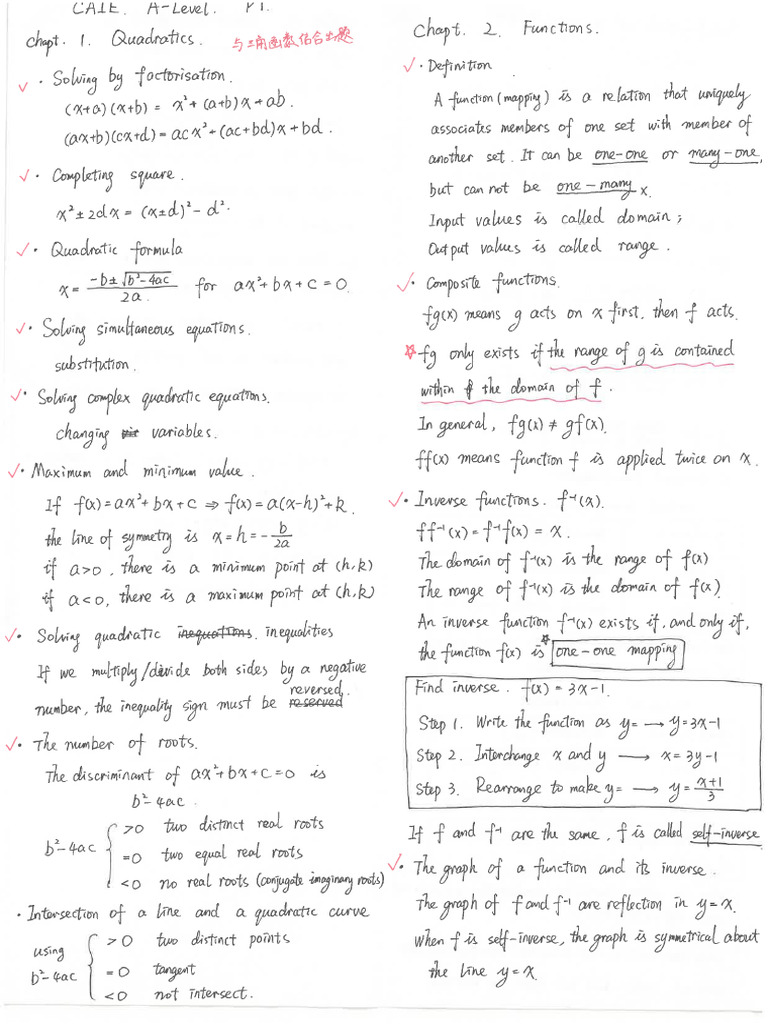 CAIE. A-Level. P1.
Chapt. 1. Quadratics. 与三角函数结合出题
✓ · Solving by factorisation.
(x+a)(x+b) = x²+(a+b)x+ab.
(ax+b)(cx+d)=acx²+(ac+bd)x+bd.
✓ · Completing square.
x²±2dx=(x±d)²-d².
✓ · Quadratic formula
x= (-b±√(b²-4ac))/2a. for ax²+bx+c=0.
✓ · Solving simultaneous equations.
substitution.
✓ · Solving complex quadratic equations.
changing variables.
✓ · Maximum and minimum value.
If f(x)=ax²+bx+c ⇒ f(x)=a(x-h)²+k.
the line of symmetry is x=h=-b/2a
if a>0, there is a minimum point at (h,k)
if a<0, there is a maximum point at (h,k)
✓ · Solving quadratic inequations. inequalities
If we multiply/divide both sides by a negative
reversed.
number, the inequality sign must be reserved
✓ · The number of roots.
The discriminant of ax²+bx+c=0 is
b²-4ac.
b²-4ac { >0 two distinct real roots
=0 two equal real roots
<0 no real roots (conjugate imaginary roots)
· Intersection of a line and a quadratic curve
using b²-4ac { >0 two distinct points
=0 tangent
<0 not intersect.
Chapt. 2. Functions.
✓ · Definition
A function (mapping) is a relation that uniquely
associates members of one set with member of
another set. It can be one-one or many-one,
but can not be one-many x.
Input values is called domain;
Output values is called range.
✓ · Composite functions.
fg(x) means g acts on x first, then f acts.
☆ fg only exists if the range of g is contained
within the domain of f.
In general, fg(x) ≠ gf(x).
ff(x) means function f is applied twice on x.
✓ · Inverse functions. f⁻¹(x).
ff⁻¹(x)=f⁻¹f(x)=x.
The domain of f⁻¹(x) is the range of f(x)
The range of f⁻¹(x) is the domain of f(x)
An inverse function f⁻¹(x) exists if, and only if,
the function f(x) is ☆ one-one mapping
Find inverse. f(x)=3x-1.
Step 1. Write the function as y= → y=3x-1
Step 2. Interchange x and y → x=3y-1
Step 3. Rearrange to make y= → y=(x+1)/3
If f and f⁻¹ are the same, f is called self-inverse
✓ · The graph of a function and its inverse.
The graph of f and f⁻¹ are reflection in y=x.
When f is self-inverse, the graph is symmetrical about
the line y=x.